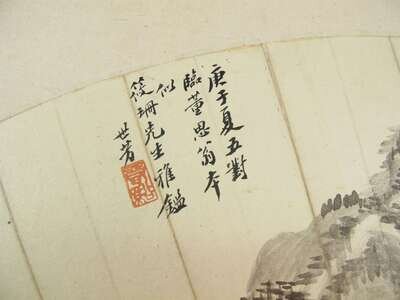 庚子夏五對
臨董思翁本
似
筱珊先生雅鑑
世芳